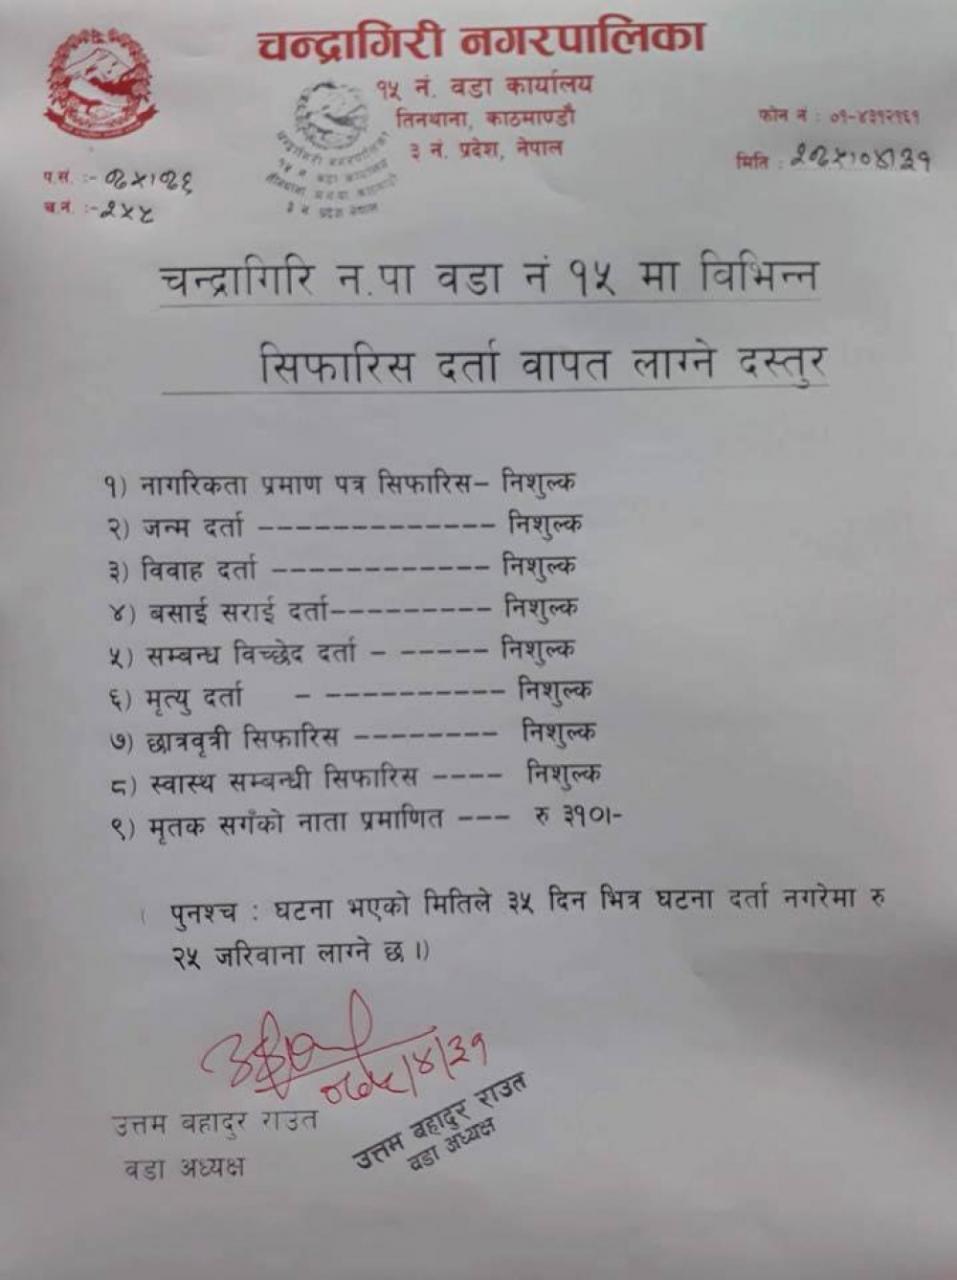 चन्द्रागिरी नगरपालिका
१५ नं. वडा कार्यालय
तिनथाना, काठमाण्डौ
३ नं. प्रदेश, नेपाल
फोन नं : ०१-४३१२१६१
मिति : २०७५।०४।३१
प.सं. :- ०७५।०७६
च.नं. :- २५५
चन्द्रागिरी नगरपालिका
१५ नं वडा कार्यालय
३ नं प्रदेश नेपाल
चन्द्रागिरि न.पा वडा नं १५ मा विभिन्न
सिफारिस दर्ता वापत लाग्ने दस्तुर
१) नागरिकता प्रमाण पत्र सिफारिस- निशुल्क
२) जन्म दर्ता ------------- निशुल्क
३) विवाह दर्ता ------------ निशुल्क
४) बसाई सराई दर्ता--------- निशुल्क
५) सम्बन्ध विच्छेद दर्ता - ----- निशुल्क
६) मृत्यु दर्ता - ---------- निशुल्क
७) छात्रवृत्री सिफारिस -------- निशुल्क
८) स्वास्थ सम्बन्धी सिफारिस ---- निशुल्क
९) मृतक सगँको नाता प्रमाणित --- रु ३१०।-
( पुनश्च : घटना भएको मितिले ३५ दिन भित्र घटना दर्ता नगरेमा रु
२५ जरिवाना लाग्ने छ ।)
०७५/४/३१
उत्तम बहादुर राउत
वडा अध्यक्ष
उत्तम बहादुर राउत
वडा अध्यक्ष